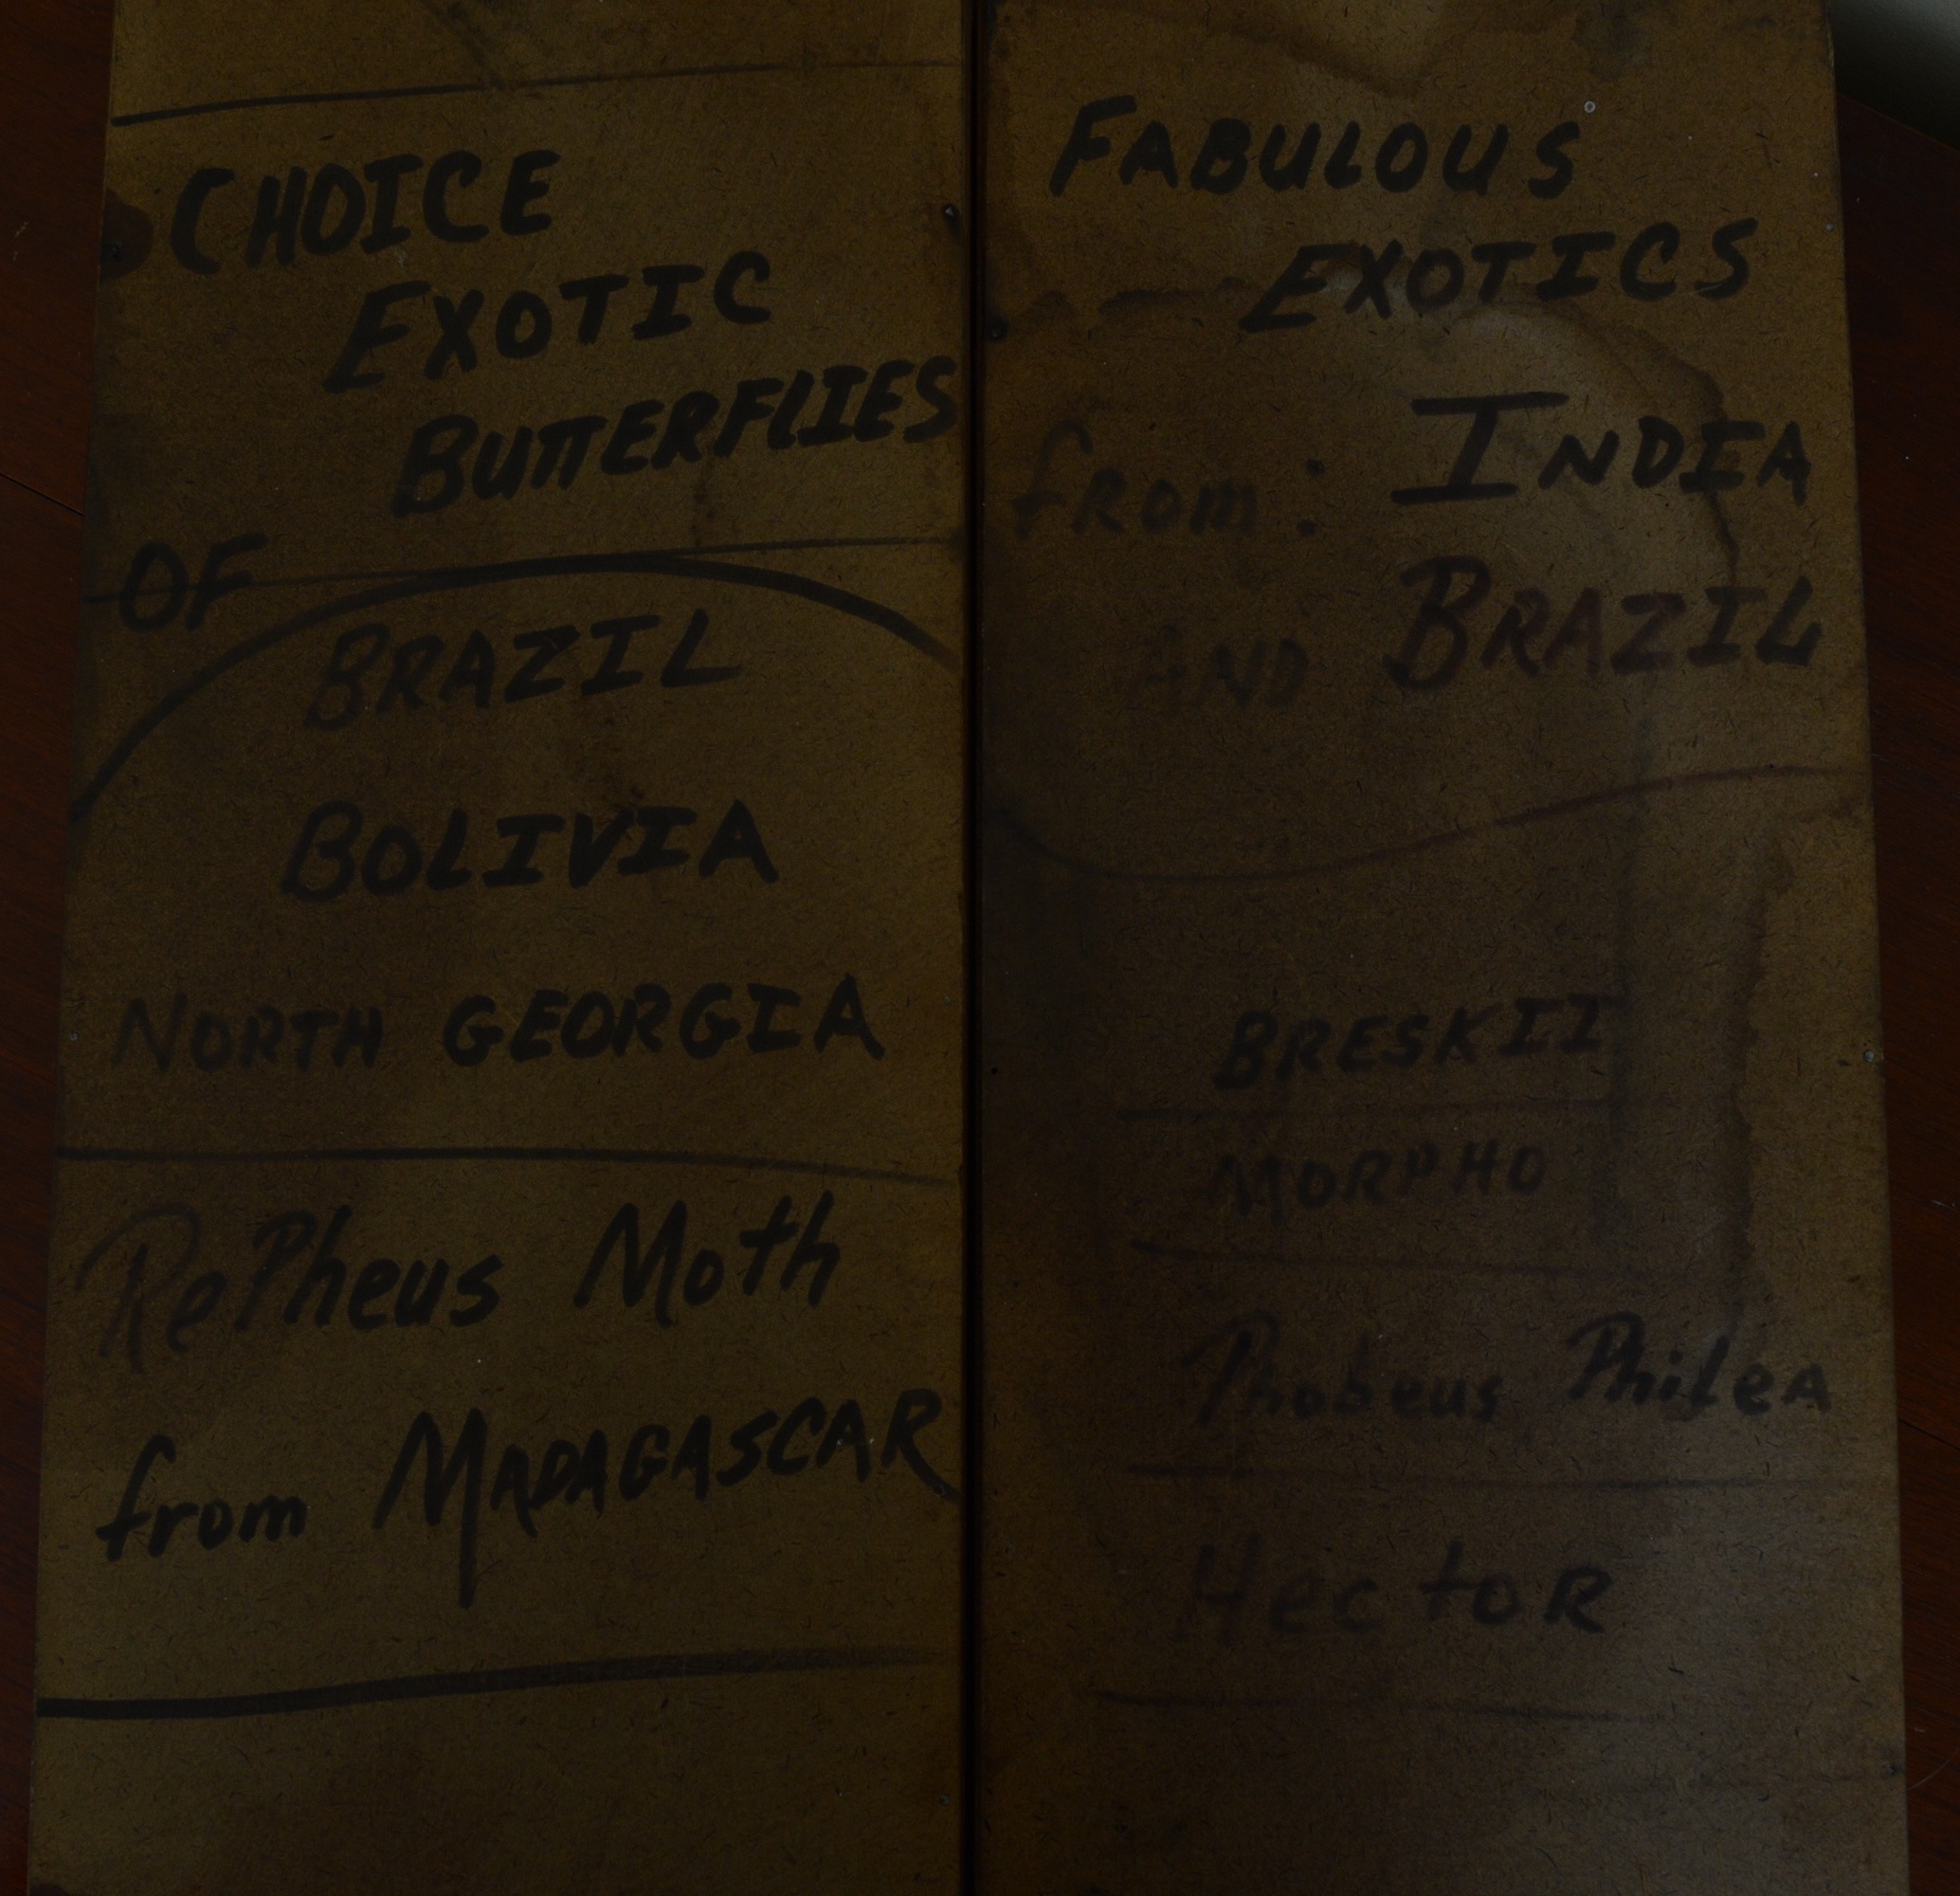 CHOICE
EXOTIC
BUTTERFLIES
OF
BRAZIL
BOLIVIA
NORTH GEORGIA
RePheus Moth
from MADAGASCAR
FABULOUS
EXOTICS
from: INDIA
AND BRAZIL
BRESKII
MORPHO
Phobeus Philea
Hector